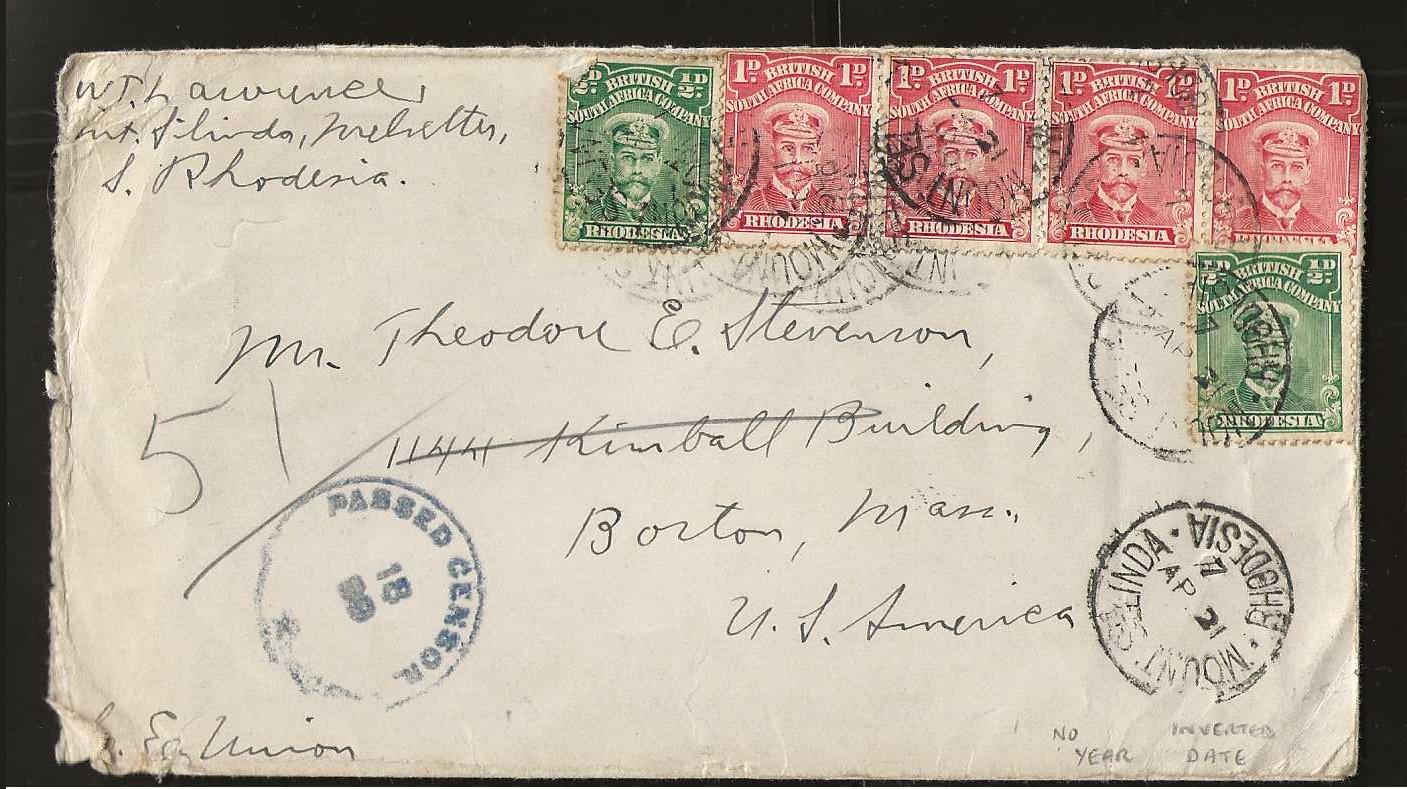 W.T. Lawrence,
Mt. Silinda, Melsetter,
S. Rhodesia.
½D BRITISH ½D
SOUTH AFRICA COMPANY
RHODESIA
1D BRITISH 1D
SOUTH AFRICA COMPANY
RHODESIA
1D BRITISH 1D
SOUTH AFRICA COMPANY
RHODESIA
1D BRITISH 1D
SOUTH AFRICA COMPANY
RHODESIA
1D BRITISH 1D
SOUTH AFRICA COMPANY
RHODESIA
½D BRITISH ½D
SOUTH AFRICA COMPANY
RHODESIA
Mr. Theodore E. Stevenson,
1144 Kimball Building,
Boston, Mass.
U. S. America
51
PASSED CENSOR
18
MOUNT SELINDA · RHODESIA
AP 21
Union
NO
YEAR
INVERTED
DATE